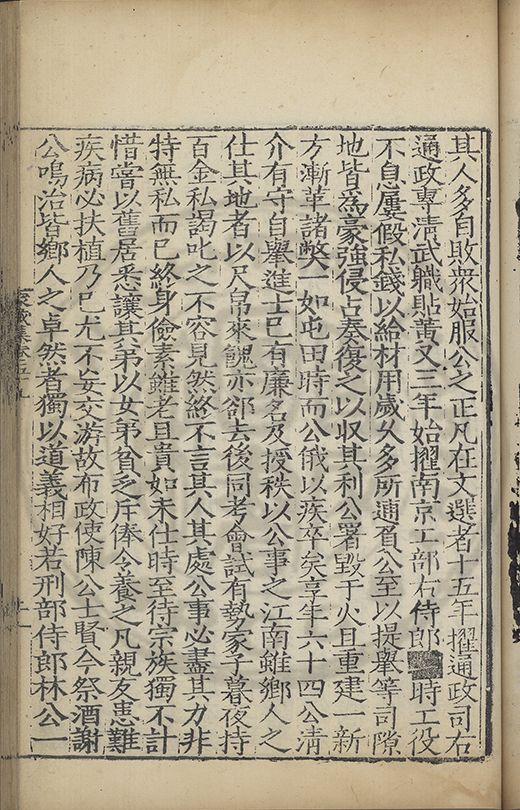 其人多自敗衆始服公之正凡在文選者十五年擢通政司右
通政專清武職貼黃又三年始擢南京工部右侍郎時工役
不息屢假私錢以給材用歲久多所逋負公至以提舉等司隙
地皆爲豪強侵占奏復之以収其利公署毀于火且重建一新
方漸革諸弊一如屯田時而公俄以疾卒矣享年六十四公清
介有守自舉進士已有廉名及授秩以公事之江南雖鄉人之
仕其地者以尺帛來餽亦郤去後同考會試有勢家子暮夜持
百金私謁叱之不容見然終不言其人其處公事必盡其力非
特無私而已終身儉素雖老且貴如未仕時至待宗族獨不計
惜嘗以舊居悉讓其弟以女弟貧乏斥俸令養之凡親友患難
疾病必扶植乃已尤不妄交游故布政使陳公士賢今祭酒謝
公鳴治皆鄉人之卓然者獨以道義相好若刑部侍郎林公一